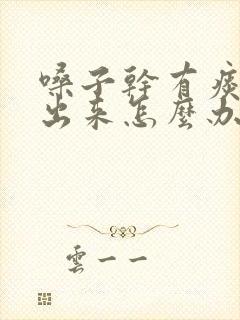 嗓子幹有痰
出来怎麼办
雲一一